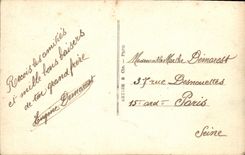 Reçois les amitiés
et mille bons baisers
de ton grand frère
Eugène Demarest
Mademoiselle Marthe Demarest
37 rue Desnouettes
15e ardt Paris
Seine